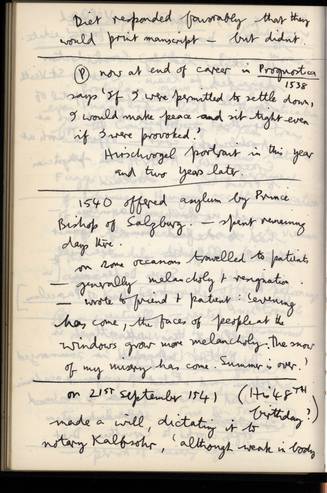 Diet responded favorably that they
would print manuscript – but didn't.
Ⓟ now at end of career in Prognostica
1538
says 'If I were permitted to settle down,
I would make peace and sit tight even
if I were provoked.'
Hirschvogel portrait in this year
and two years later.
1540 offered asylum by Prince
Bishop of Salzburg. – spent remaining
days there.
on some occasions travelled to patients
– generally melancholy & resignation.
– wrote to friend & patient: 'evening
has come, the faces of people at the
windows grow more melancholy. The snow
of my misery has come. Summer is over.'
on 21ST September 1541 (His 48TH
birthday?)
made a will, dictating it to
notary Kalbsohr, 'although weak in body